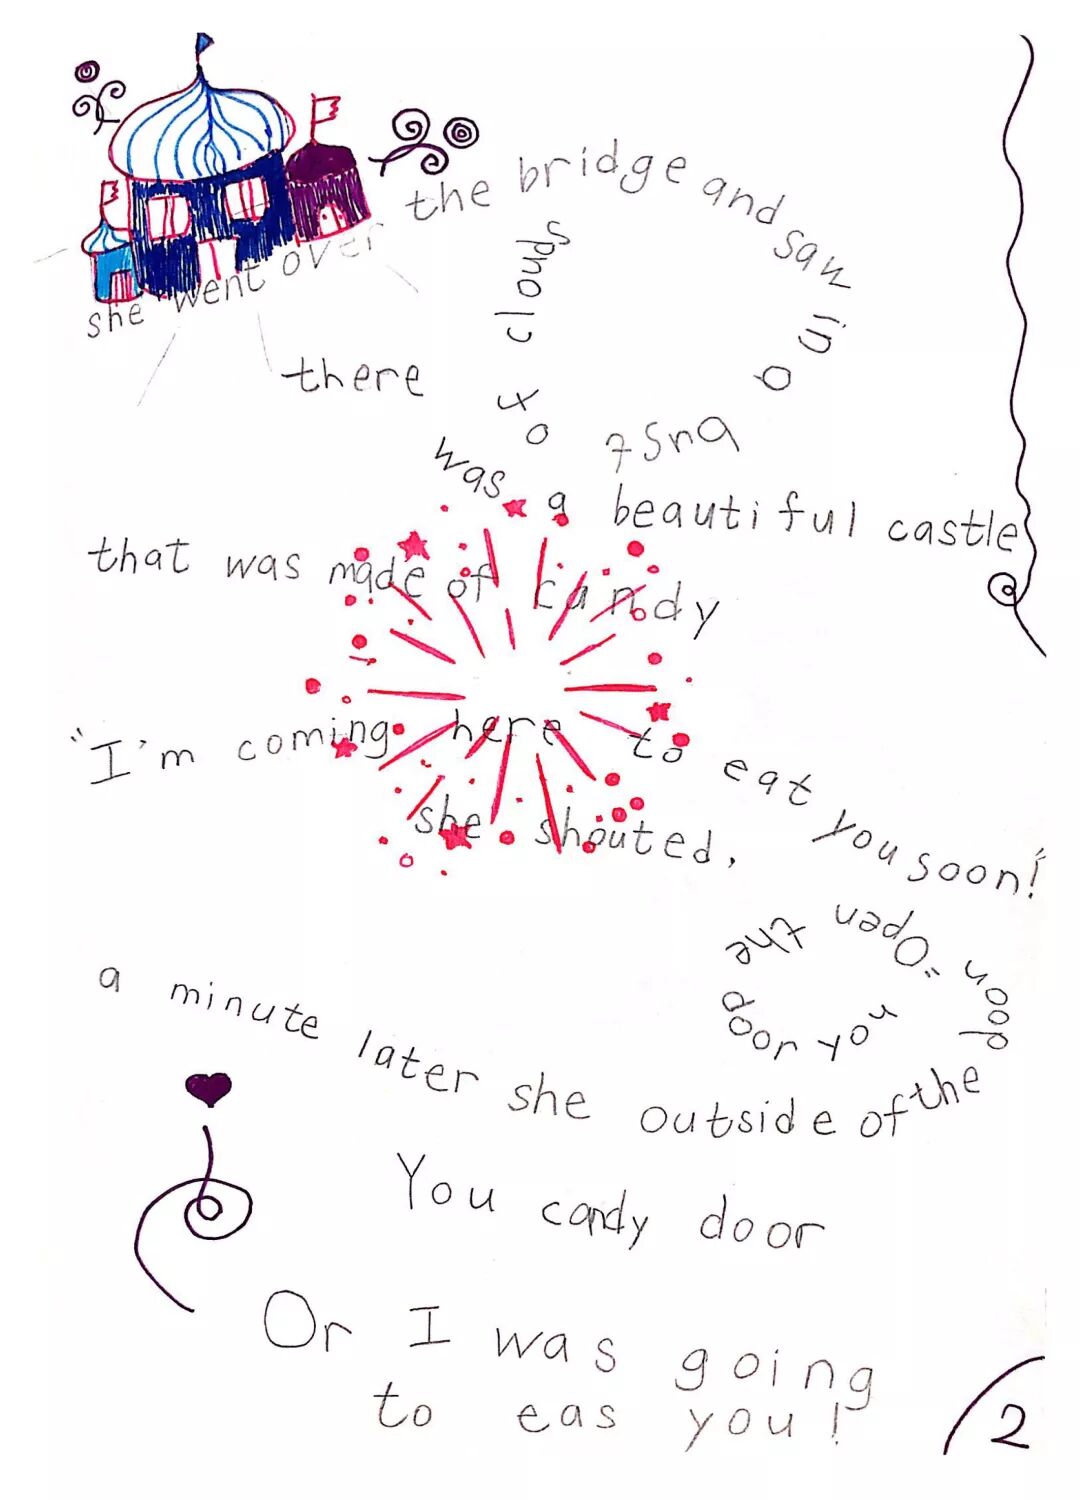 she went over the bridge and saw in a bust of clouds
there was a beautiful castle
that was made of candy
"I'm coming here to eat you soon!"
she shouted.
a minute later she outside of the door
"Open the door you
You candy door
Or I was going
to eas you!
2